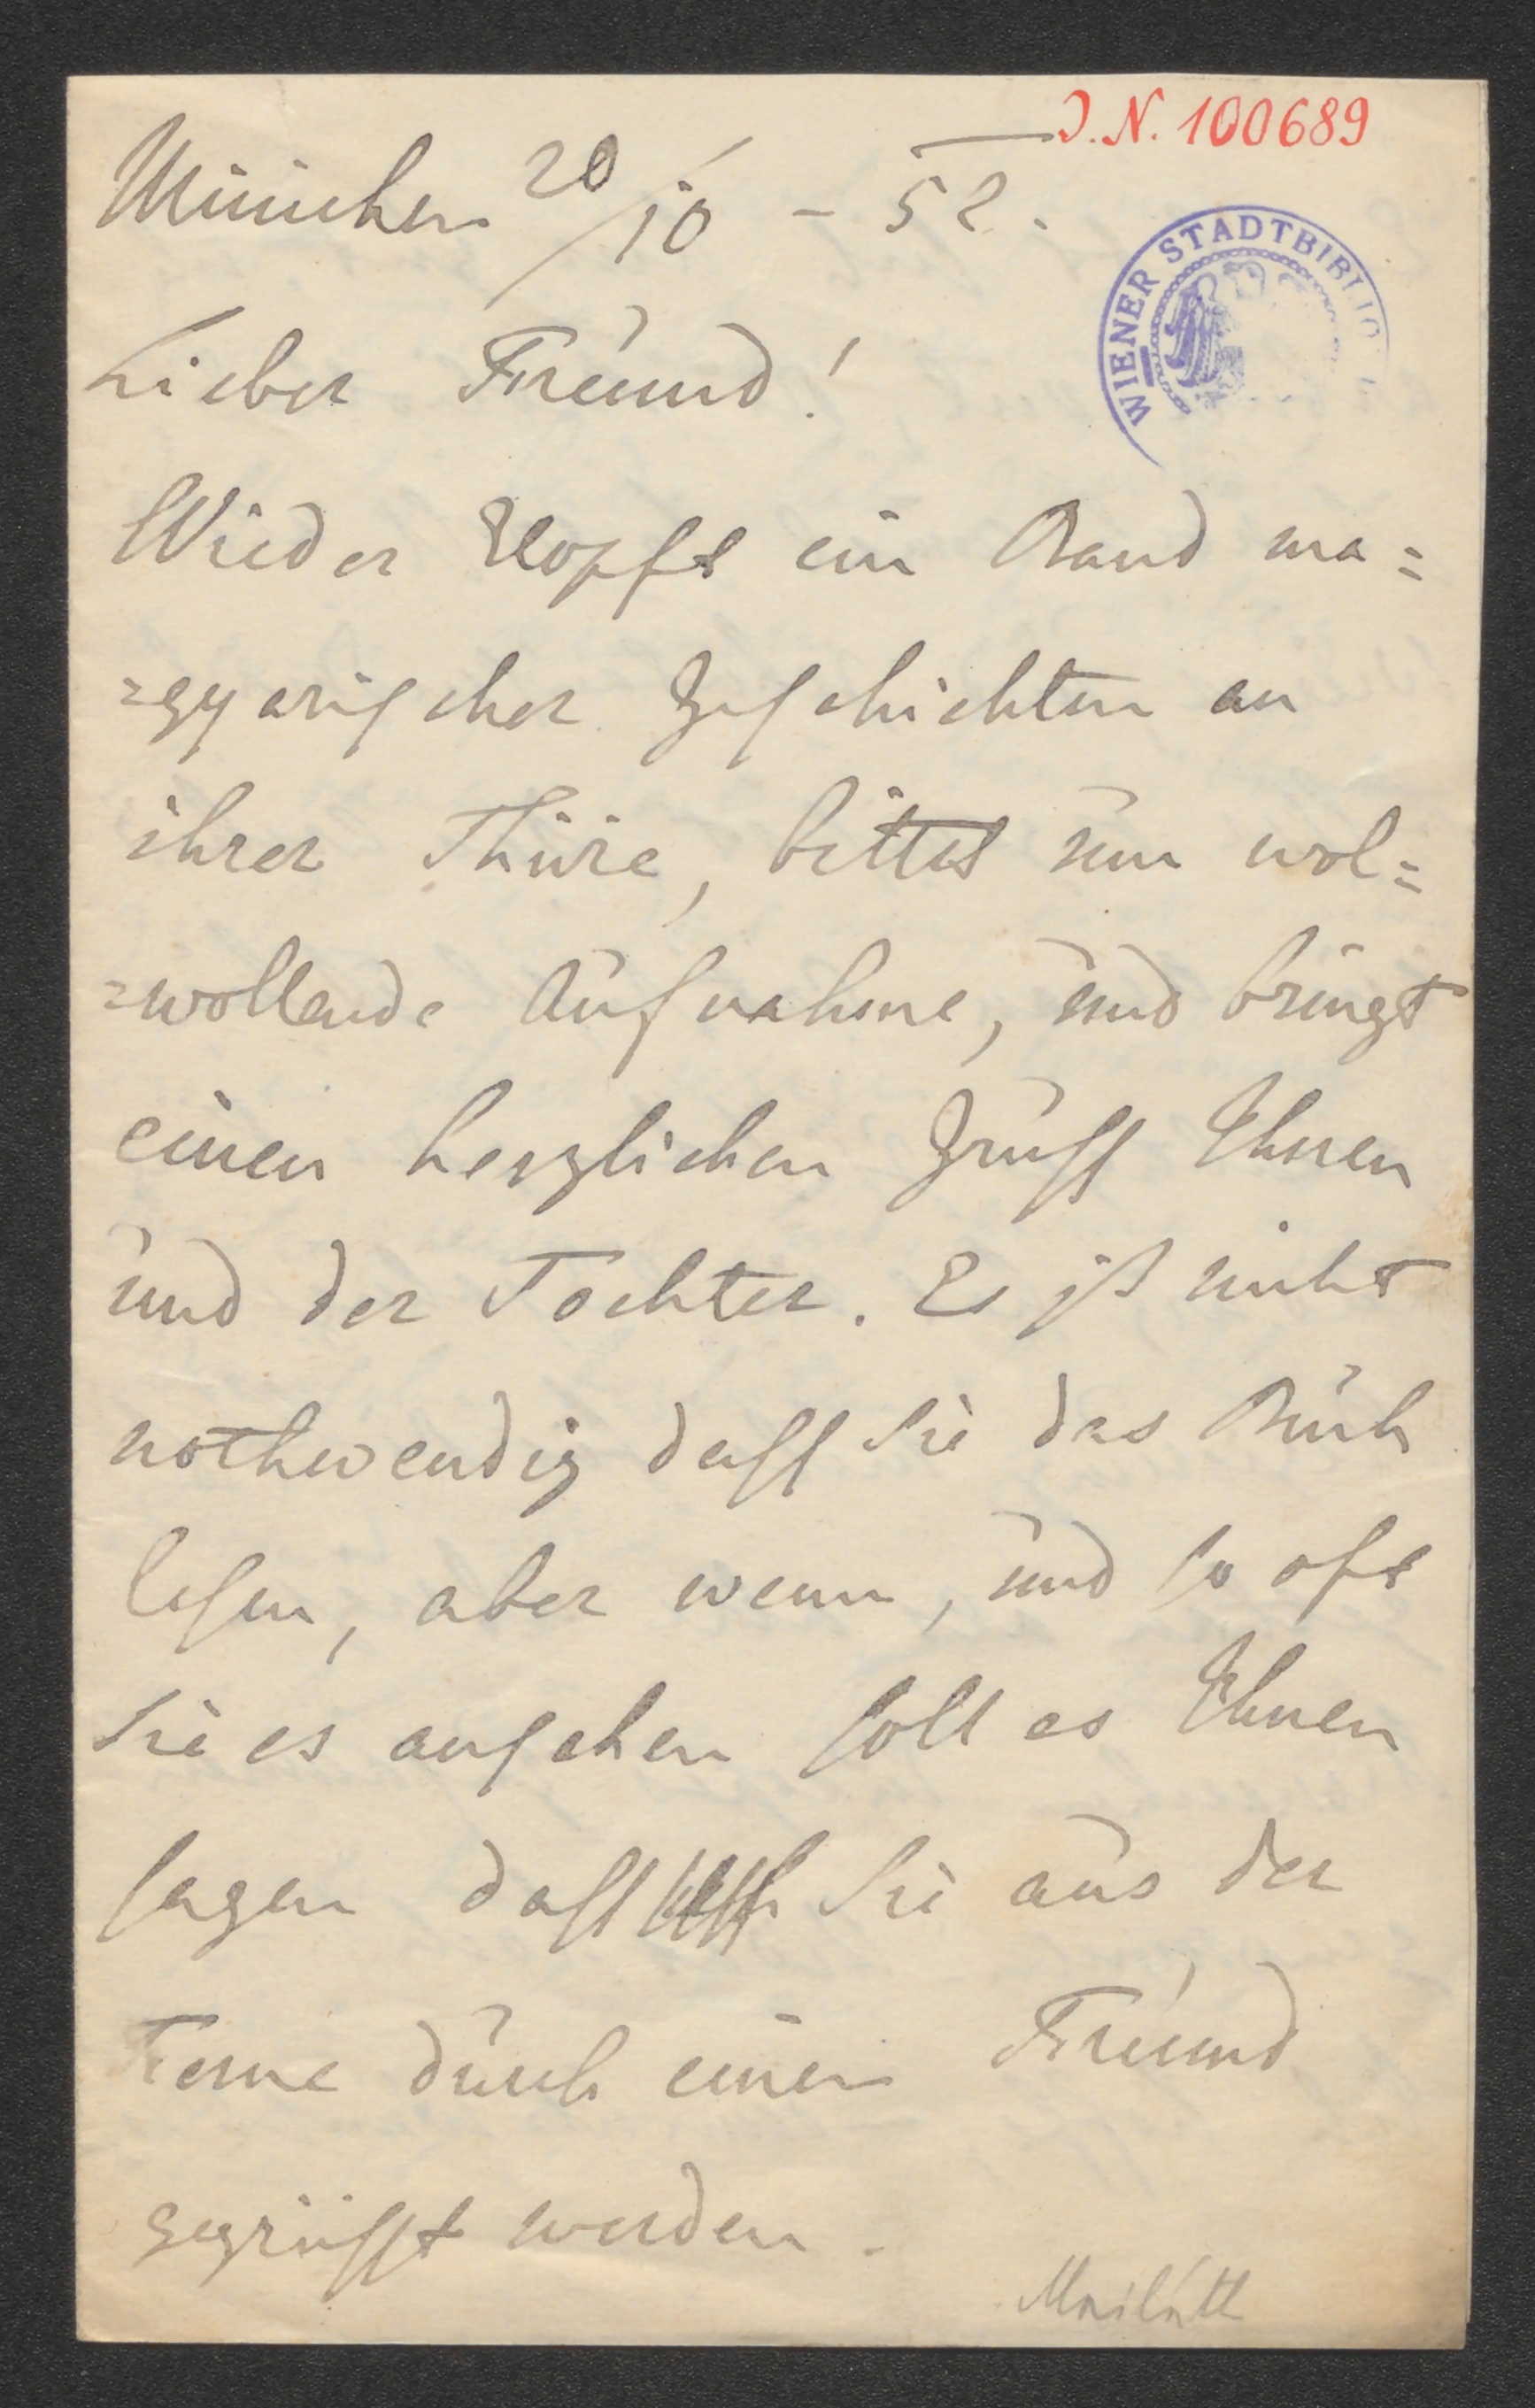 J.N. 100689
München 20/10 - 52.
WIENER STADTBIBLIO
Lieber Freund!
Wieder klopft ein Band ma=
=gyarischer Geschichten an
ihrer Thüre, bittet um wol=
=wollende Aufnahme, und bringt
einen herzlichen Gruss Ihnen
und der Tochter. Es ist nicht
nothwendig dass Sie das Buch
lesen, aber wenn, und so oft
Sie es ansehen soll es Ihnen
sagen dass Sie aus der
Ferne durch einen Freund
gegrüsst werden.
Mailáth